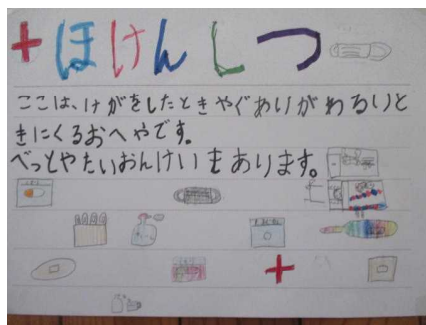 +ほけんしつ
ここは、けがをしたときやぐあいがわるいと
きにくるおへやです。
べっとやたいおんけいもあります。